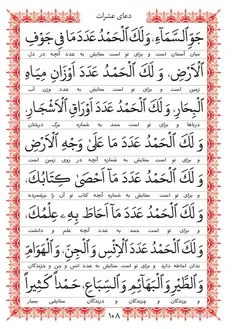 دعای عشرات
جَوِّ السَّمَاءِ، وَلَكَ الْحَمْدُ عَدَدَ مَا فِي جَوْفِ
میان آسمان است و برای تو است ستایش به عدد آنچه در دل
الْاَرْضِ، وَ لَكَ الْحَمْدُ عَدَدَ اَوْزَانِ مِيَاهِ
زمین است و برای تو است ستایش به عدد وزن آب
الْبِحَارِ، وَ لَكَ الْحَمْدُ عَدَدَ اَوْرَاقِ الْاَشْجَارِ،
دریاها و برای تو است حمد به شماره برگ درختان
وَ لَكَ الْحَمْدُ عَدَدَ مَا عَلَىٰ وَجْهِ الْاَرْضِ
و برای تو است ستایش به شماره آنچه در روی زمین است
وَ لَكَ الْحَمْدُ عَدَدَ مَا اَحْصَىٰ كِتَابُكَ،
و برای تو است ستایش به شماره آنچه کتاب تو آن را برشمرده
وَ لَكَ الْحَمْدُ عَدَدَ مَا اَحَاطَ بِهِ عِلْمُكَ،
و برای تو است حمد به عدد آنچه علم و دانشت
وَ لَكَ الْحَمْدُ عَدَدَ الْاِنْسِ وَ الْجِنِّ، وَ الْهَوَامِّ
بدان احاطه دارد و برای تو است ستایش به عدد انس و جن و خزندگان
وَ الطَّيْرِ وَ الْبَهَائِمِ وَ السِّبَاعِ، حَمْداً كَثِيراً
و پرندگان و چرندگان و درندگان ستایشی بسیار
۱۰۸